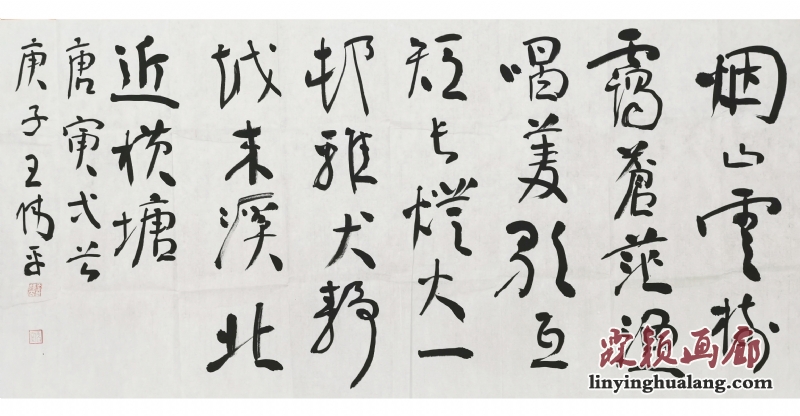 烟山雲樹
靄蒼茫漁
唱菱歌互
短長燈火一
邨雞犬靜
越来溪北
近横塘
唐寅弋首
庚子王平
颖画廊
linyinghualang.com